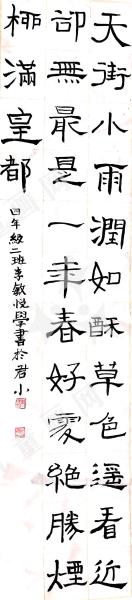 天街小雨潤如酥草色遥看近
卻無最是一年春好處絕勝煙
柳滿皇都
四年級二班李敏悦學書於君小